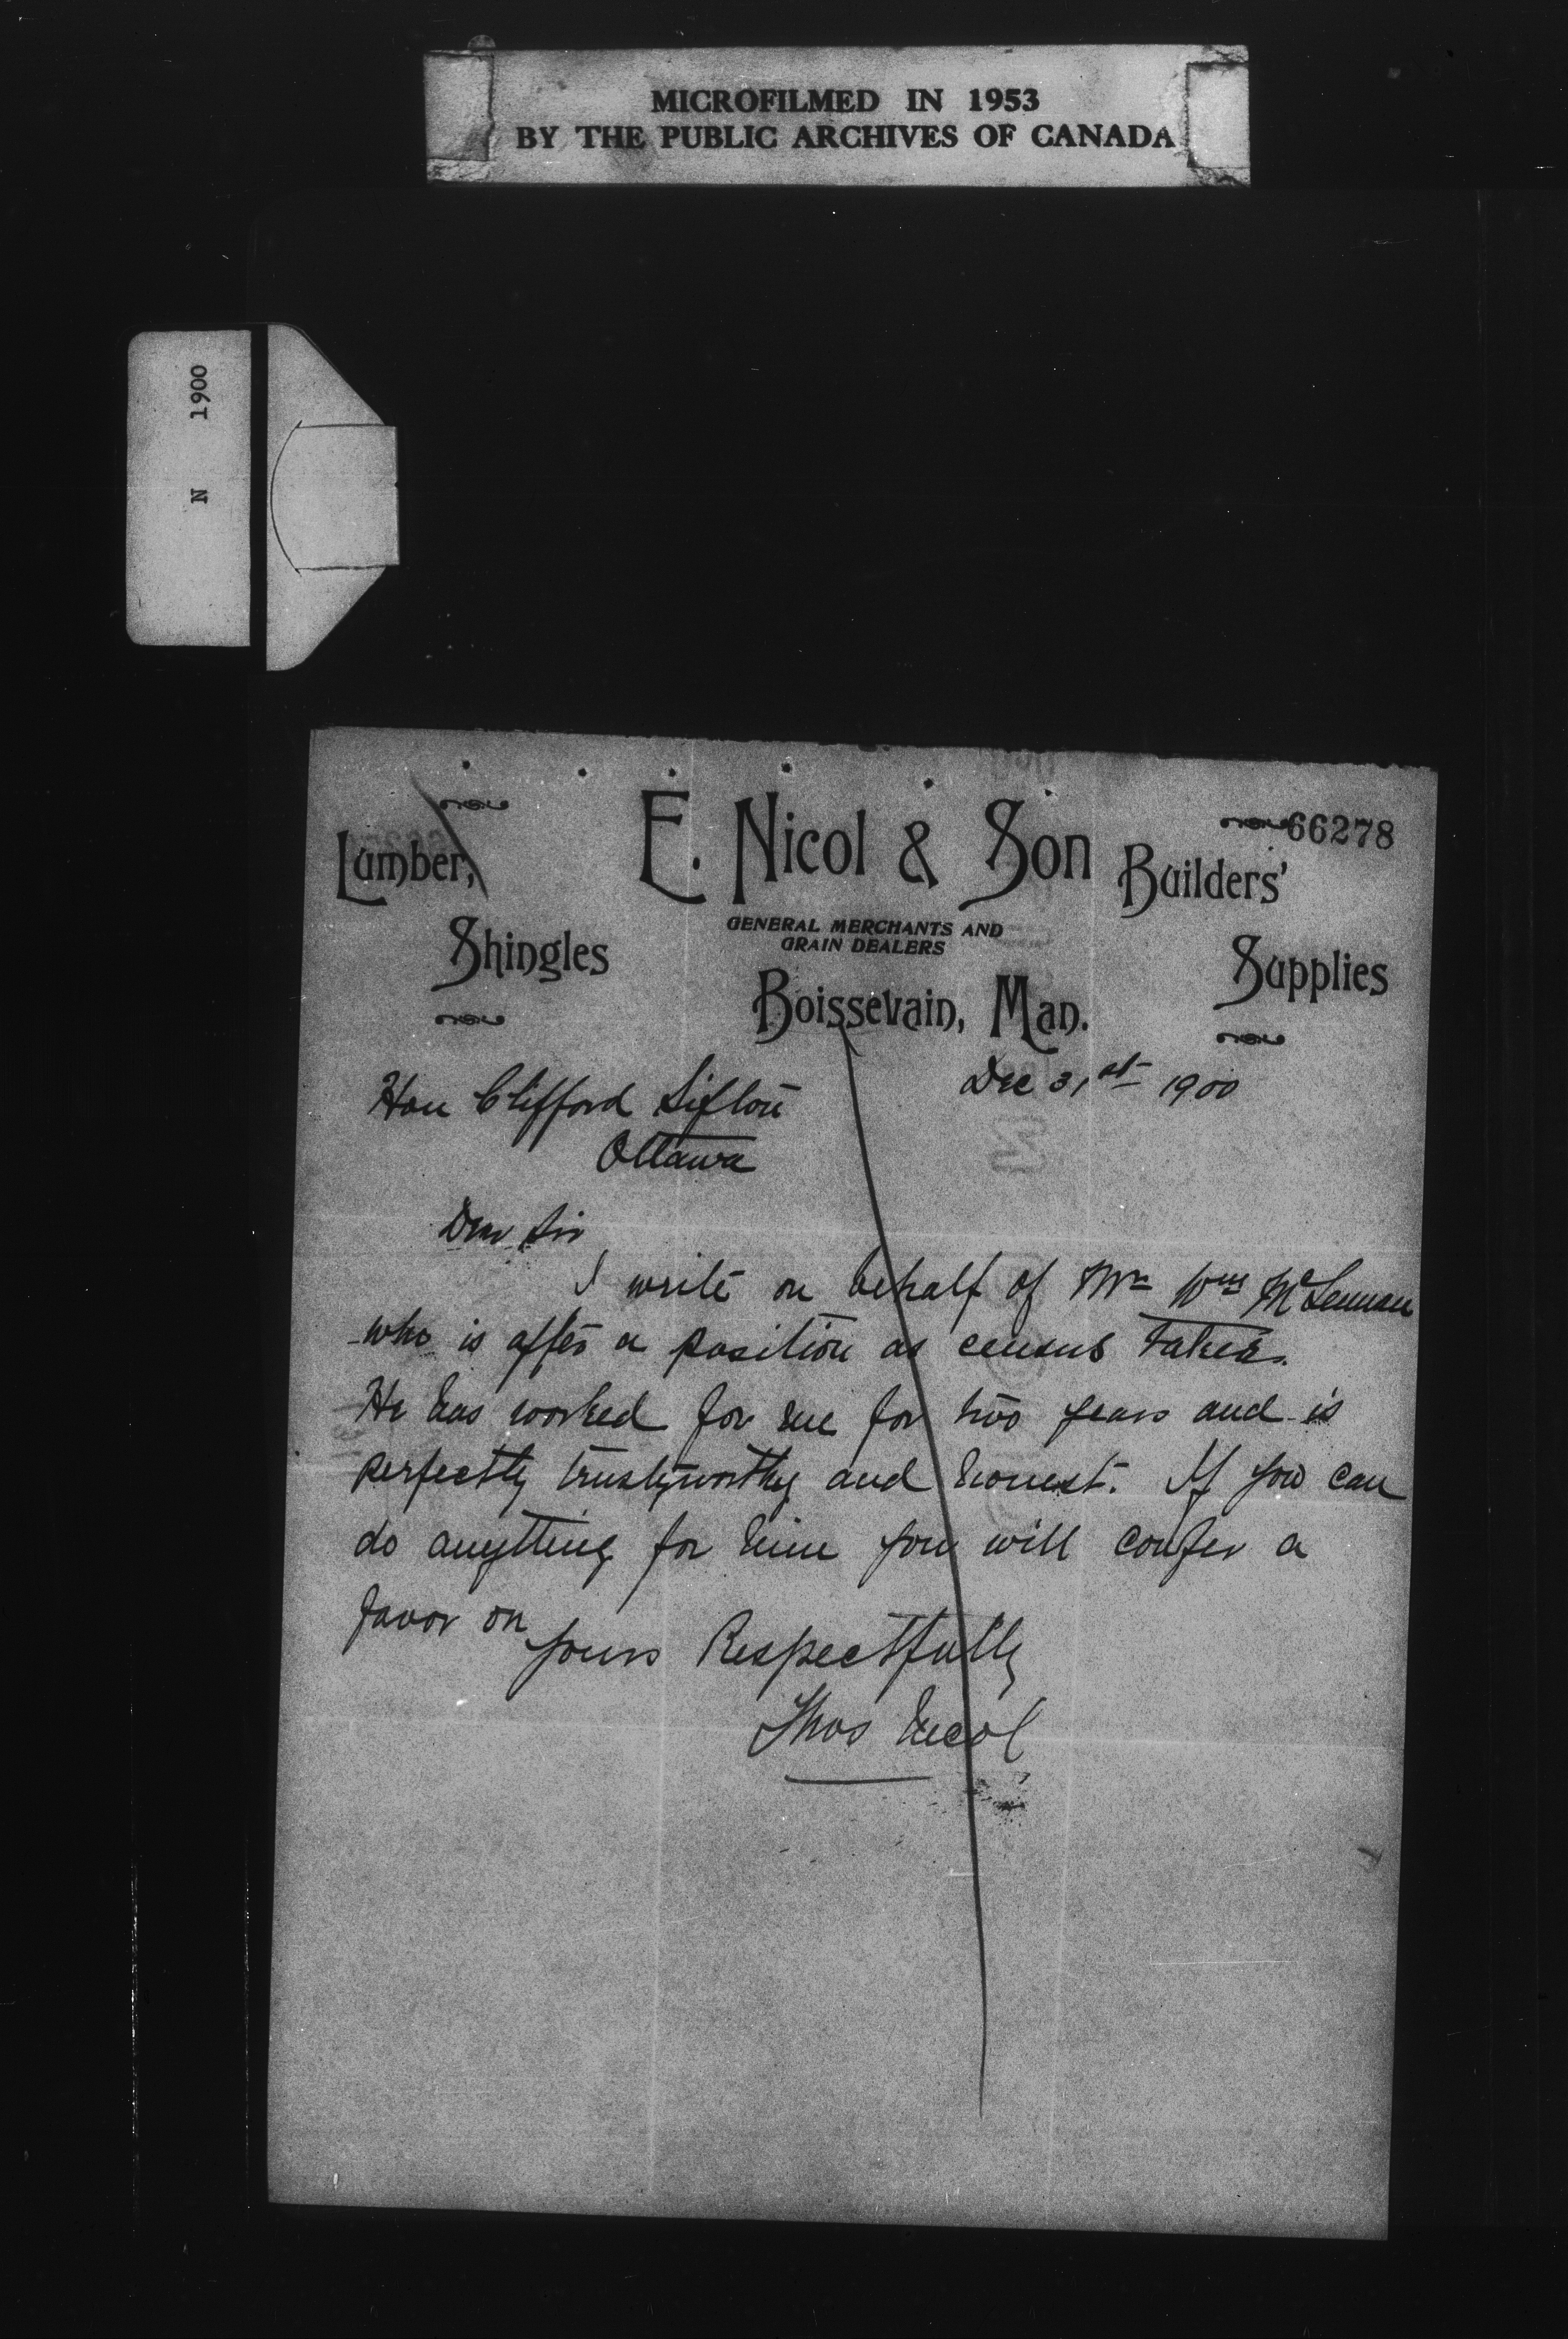 MICROFILMED IN 1953
BY THE PUBLIC ARCHIVES OF CANADA
N 1900
66278
E. Nicol & Son
Lumber,
Shingles
GENERAL MERCHANTS AND
GRAIN DEALERS
Builders'
Supplies
Boissevain, Man.
Dec 31st 1900
Hon Clifford Sifton
Ottawa
Dear Sir
I write on behalf of Mr Wm McLennan
who is after a position as census taker.
He has worked for me for two years and is
perfectly trustyworthy and honest. If you can
do anything for him you will confer a
favor on
Yours Respectfully
Thos Nicol